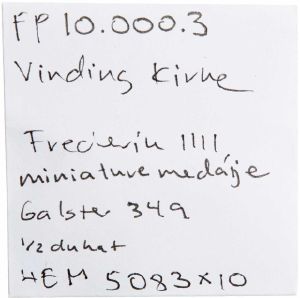 FP 10.000.3
Vinding Kirke
Frederik IIII,
miniature medaje
Galster 349
1/2 dukat
HEM 5083x10